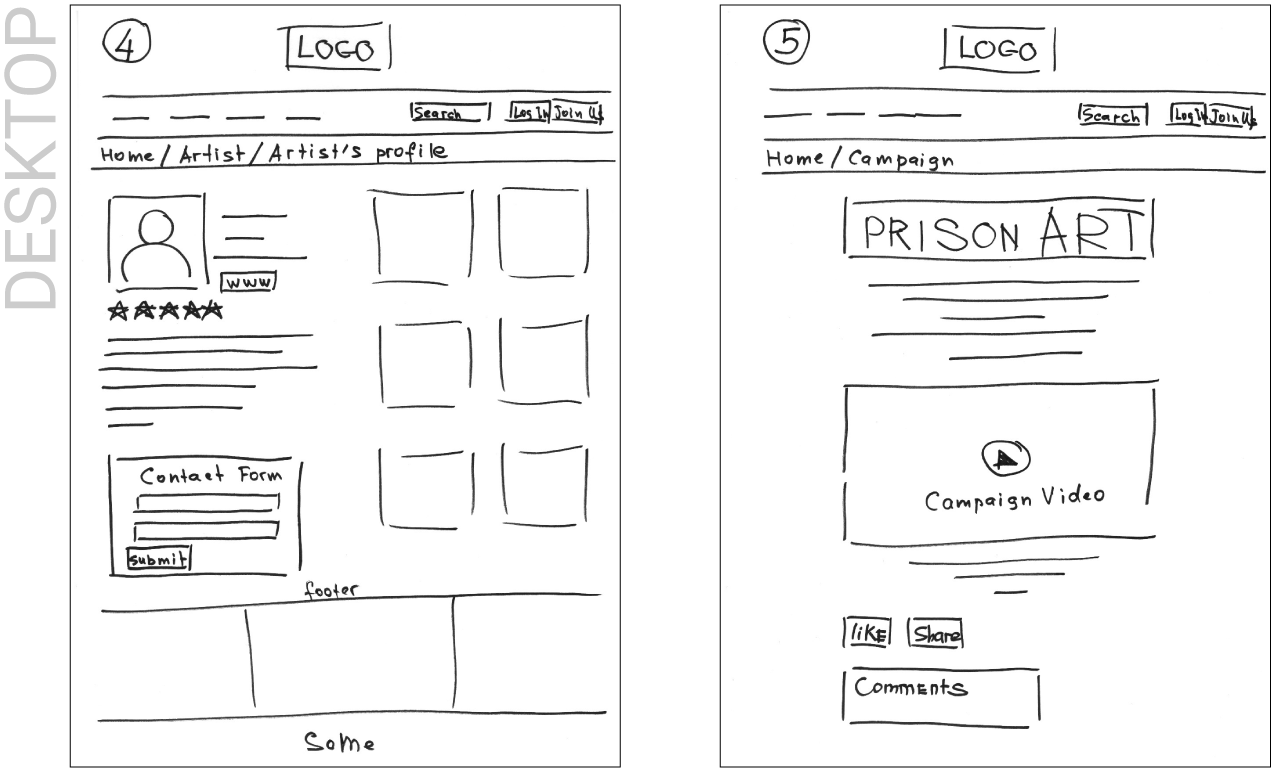 DESKTOP
4
LOGO
Search Log In Join Us
Home / Artist / Artist's profile
WWW
Contact Form
submit
footer
SoMe
5
LOGO
Search Log In Join Us
Home / Campaign
PRISON ART
Campaign Video
liKE Share
Comments